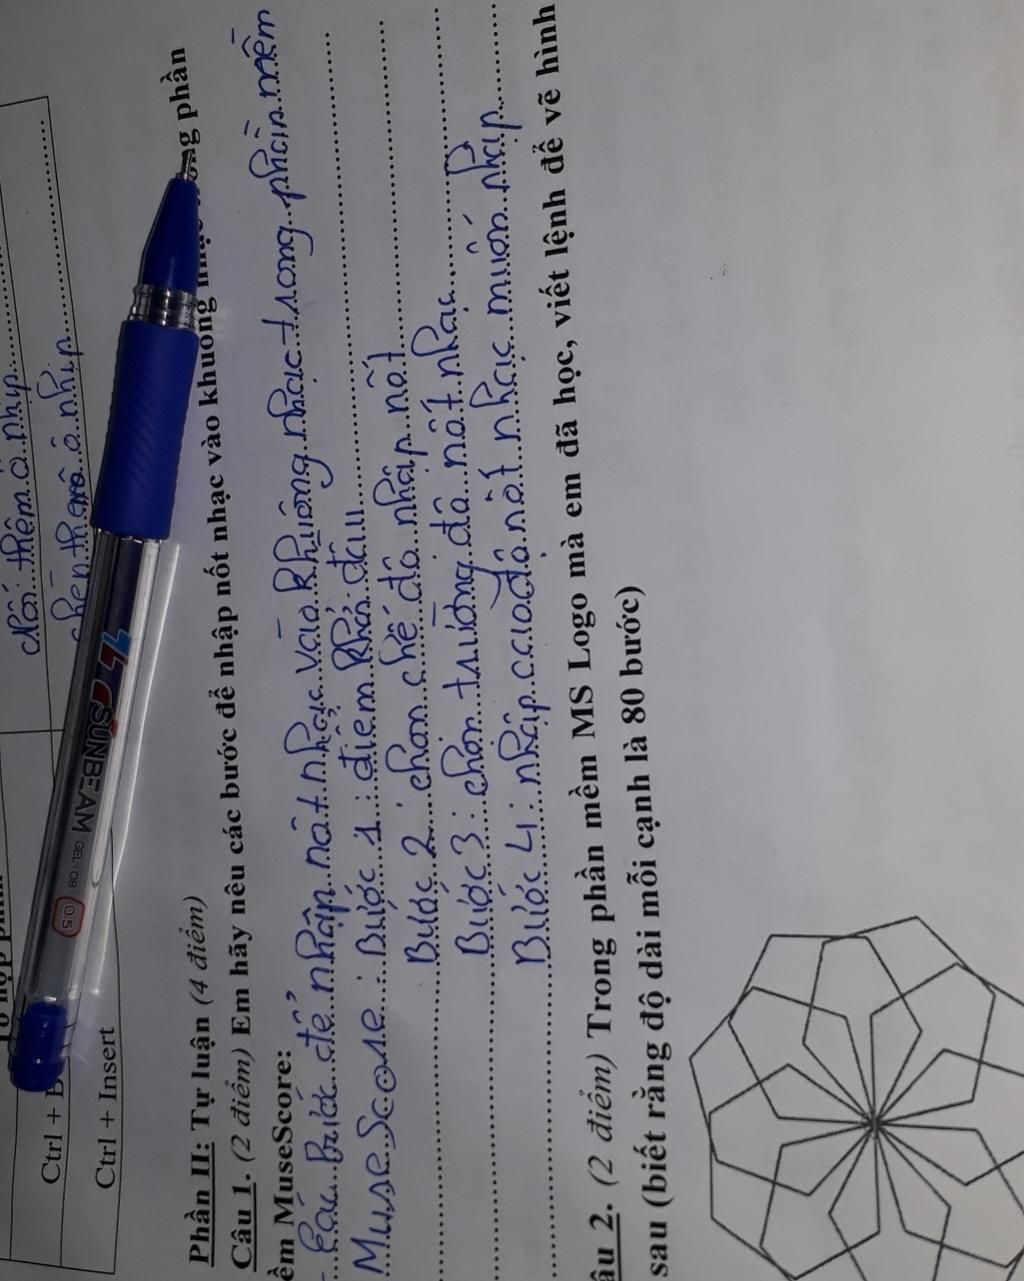 Nối thêm ô nhịp
chèn thêm ô nhịp
Ctrl +
Ctrl + Insert
SUNBEAM GEL-08 0.5
Phần II: Tự luận (4 điểm)
Câu 1. (2 điểm) Em hãy nêu các bước để nhập nốt nhạc vào khuông trong phần
ềm MuseScore:
Các bước để nhập nốt nhạc vào khuông nhạc trong phần mềm
MuseScore: Bước 1: điểm khởi đầu
Bước 2: chọn chế độ nhập nốt
Bước 3: chọn trường độ nốt nhạc
Bước 4: nhập cao độ nốt nhạc muốn nhập
âu 2. (2 điểm) Trong phần mềm MS Logo mà em đã học, viết lệnh để vẽ hình
sau (biết rằng độ dài mỗi cạnh là 80 bước)